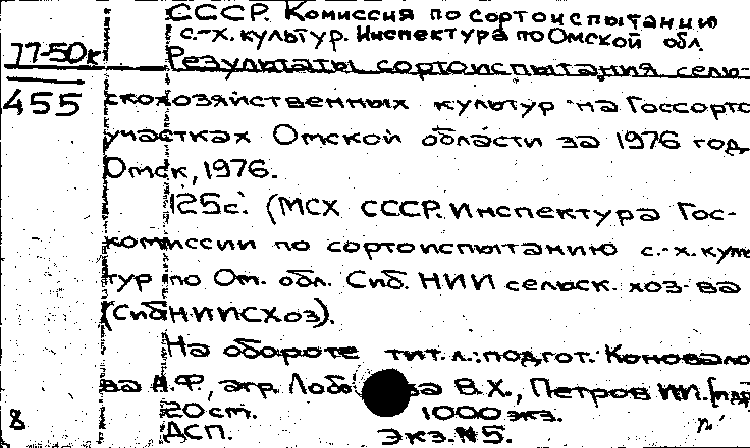 СССР. Комиссия по сортоиспытанию
с.-х. культур. Инспектура по Омской обл
77-50к
Результаты сортоиспытания сель-
455
скохозяйственных культур на Госсорто
участках Омской области за 1976 год
Омск, 1976.
125с. (МСХ СССР. Инспектура Гос-
комиссии по сортоиспытанию с.-х. куль
тур по Ом. обл. Сиб. НИИ сельск. хоз-ва
(СибНИИСХоз).
На обороте тит. л.: подгот. Коновало
ва А.Ф., агр. В.Х., Петров И.И.
20 cm. 1000 экз.
8
ДСП. Экз. №5.